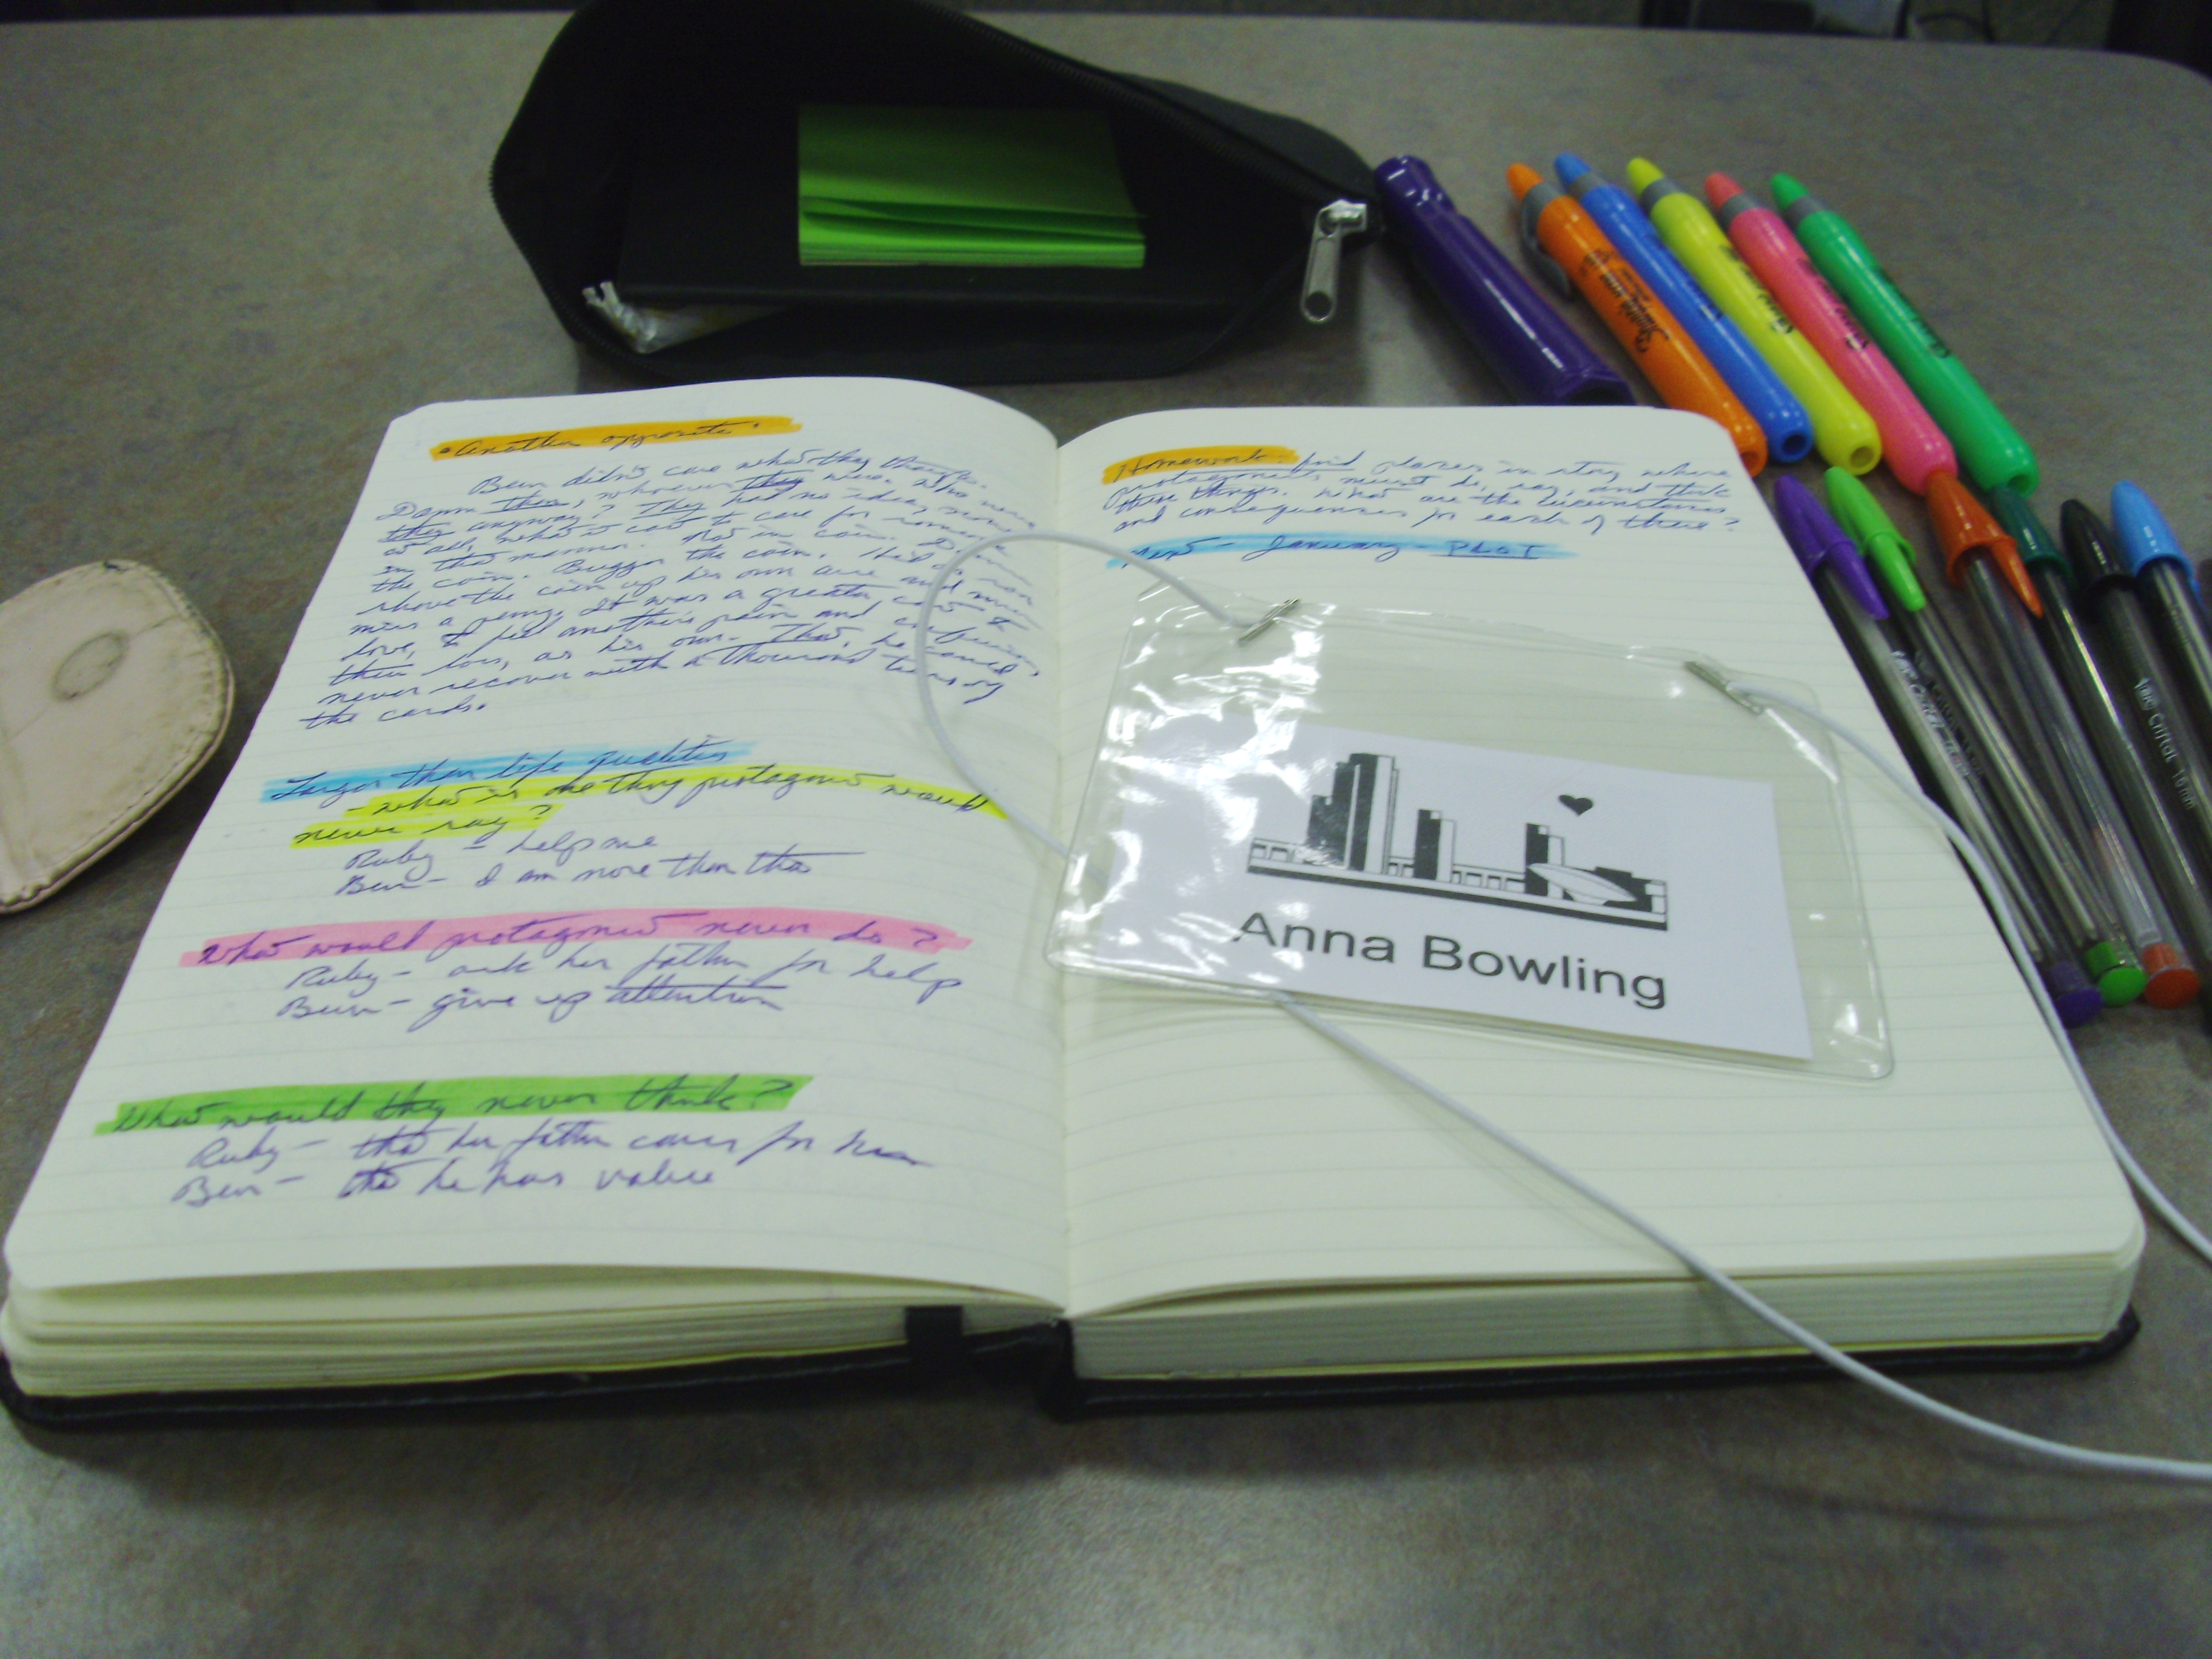 Another opposite
Ben didn's care what they thought.
Damn them, whoever they were. Who were
they anyway? They had no idea, none
at all, what it cost to care for someone
in that manner. Not in coin. Damn
the coin. Bugger the coin. He'd as soon
shove the coin up his own arse and never
miss a penny. It was a greater cost to
love, to feel another's pain and confusion,
their loss, as his own. That, he could
never recover with a thousand turns of
the cards.
Larger than life qualities
- what is one thing protagonist would
never say?
Ruby - help me
Ben - I am more than this
What would protagonist never do?
Ruby - ask her father for help
Ben - give up attention
What would they never think?
Ruby - that her father cares for her
Ben - that he has value
Homework - find places in story where
protagonists must do, say, and think
these things. What are the circumstances
and consequences for each of these?
Next - January - PLOT
Anna Bowling
Sharpie
Cristal 1.6mm